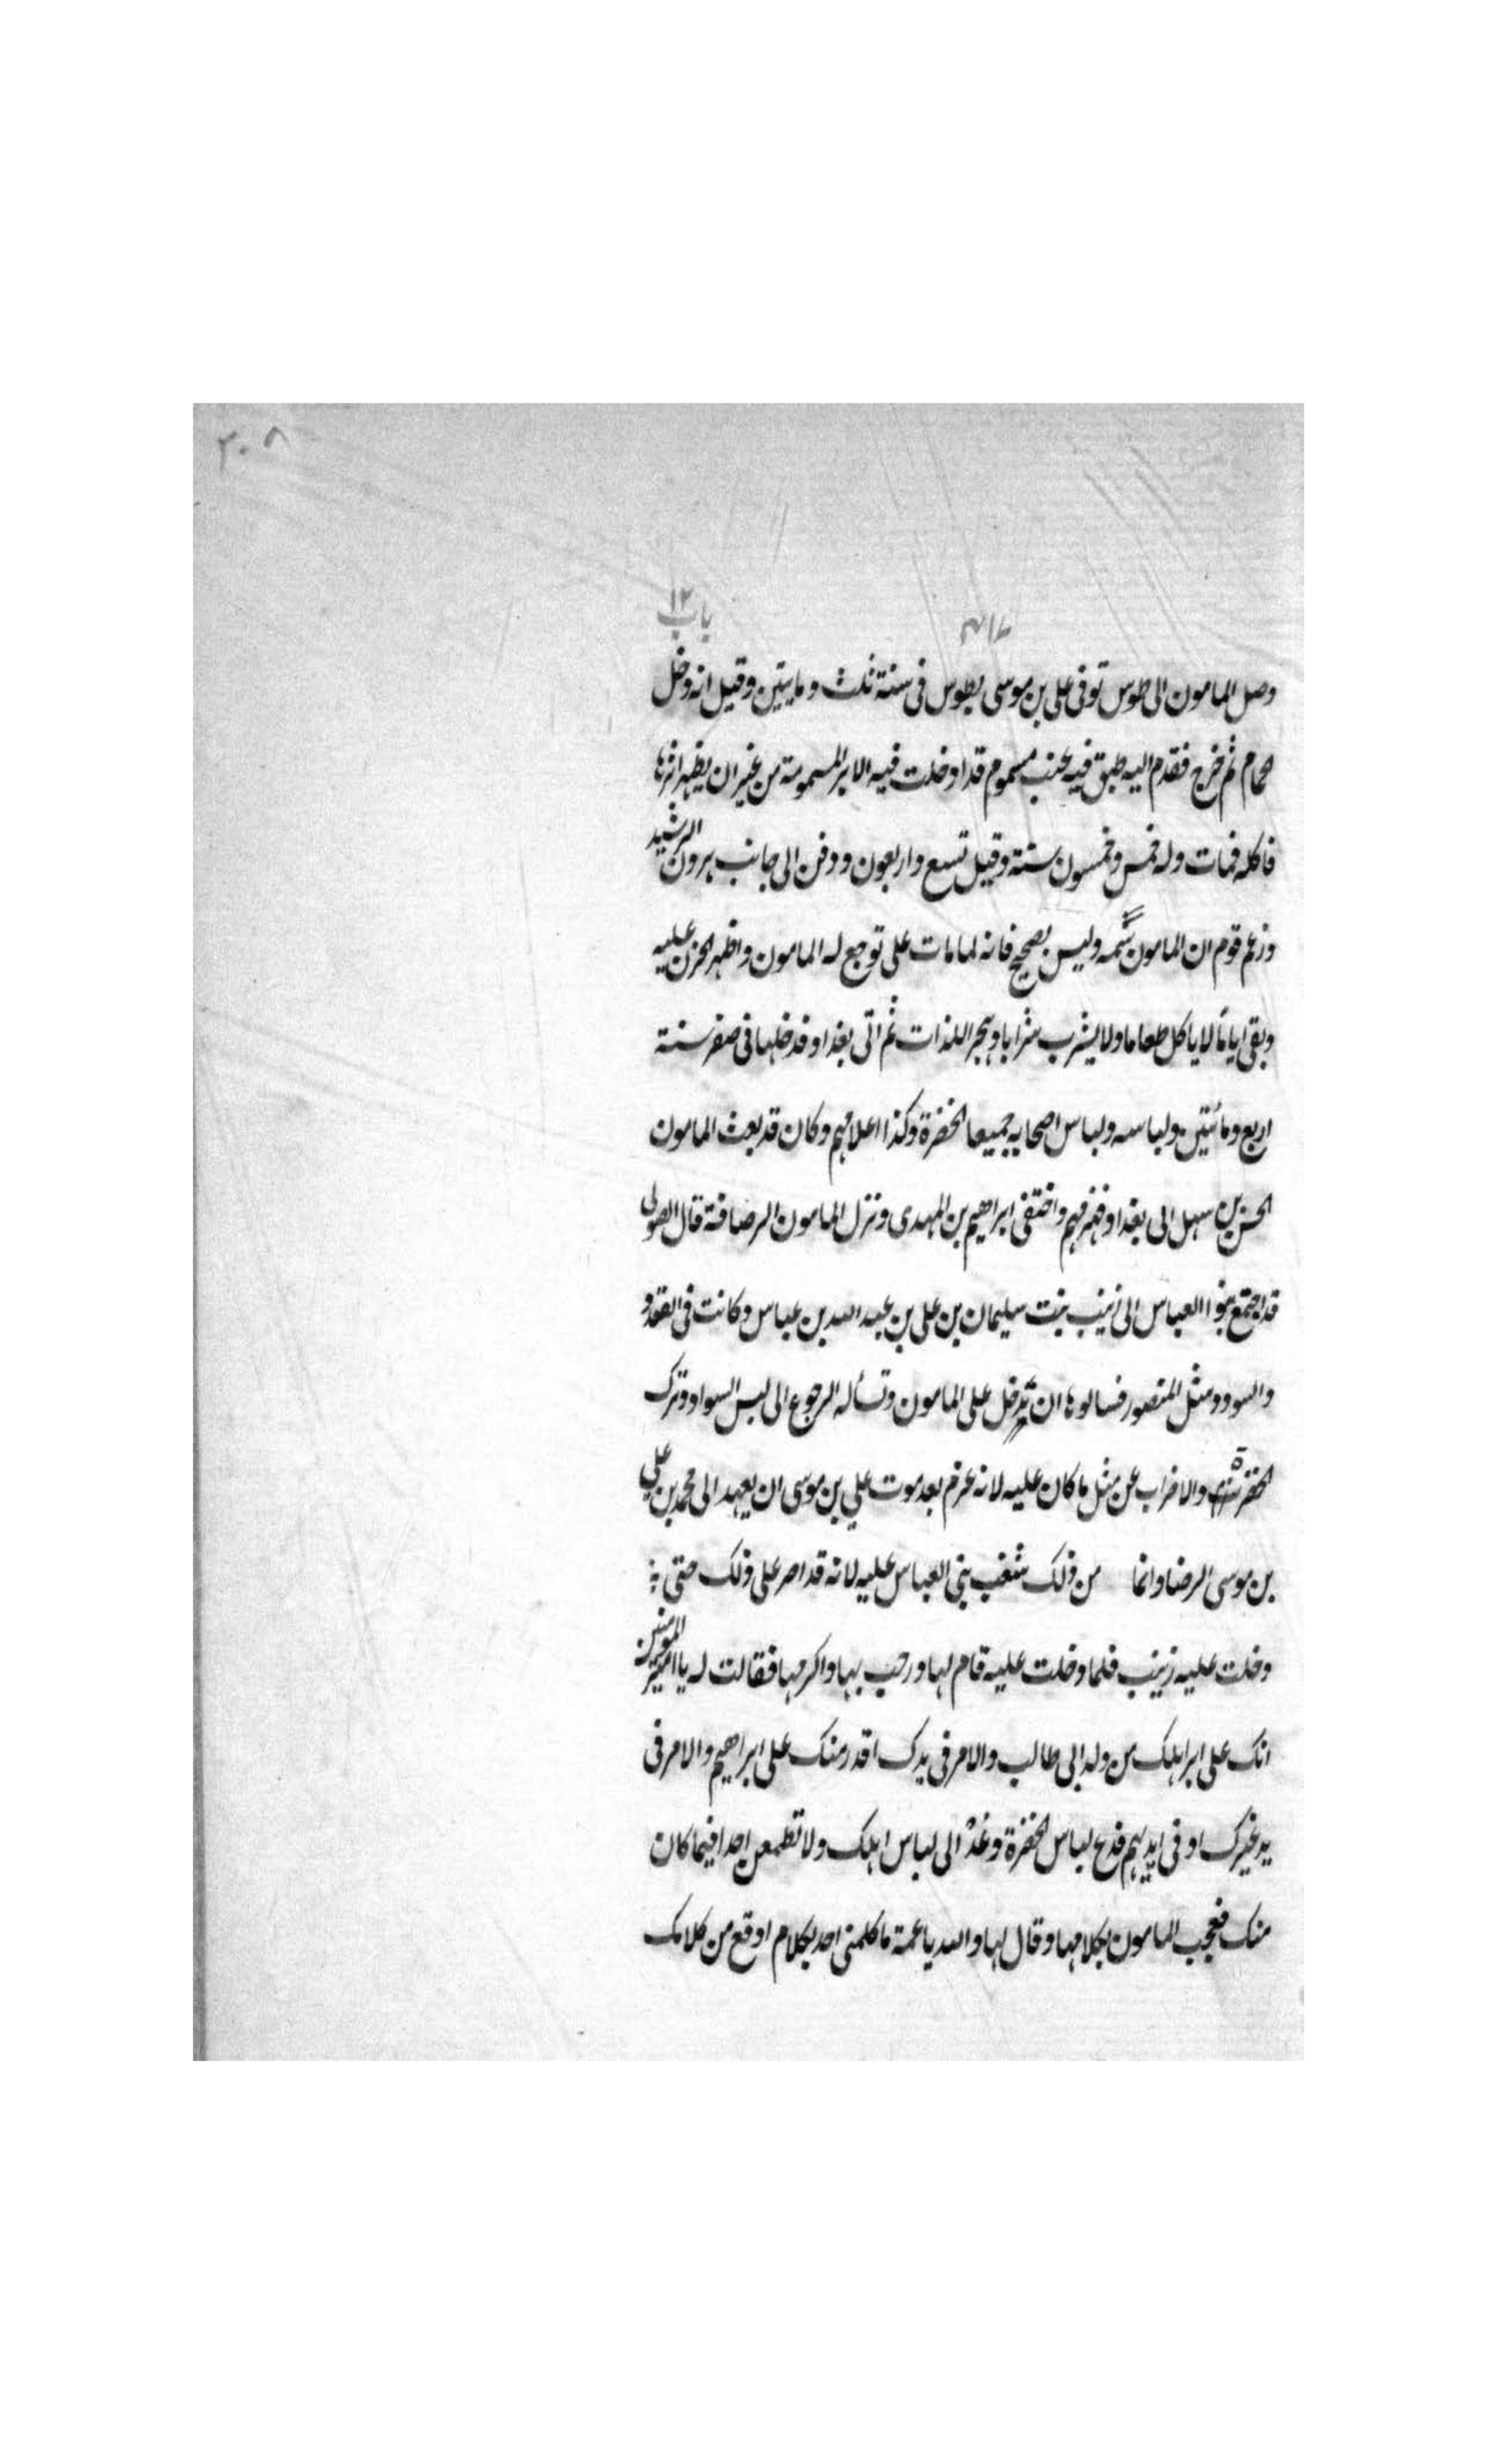 ٣٠٨
باب ١٢
وصل المامون الى طوس توفى على بن موسى بطوس فى سنة ثلث و مايتين وقيل انه دخل
الحمام ثم خرج فقدم اليه طبق فيه عنب مسموم قد ادخلت فيه الابر المسمومة من غير ان يظهر اثرها
فاكله فمات وله خمس وخمسون سنة وقيل تسع واربعون ودفن الى جانب هرون الرشيد
وزعم قوم ان المامون سمه وليس بصحيح فانه لما مات على توجع له المامون واظهر الحزن عليه
وبقى اياما لا ياكل طعاما ولا يشرب شرابا وهجر اللذات ثم اتى بغداد فدخلها فى صفر سنة
اربع ومائتين ولباسه ولباس اصحابه جميعا الخضرة وكذا اعلامهم وكان قد بعث المامون
الحسن بن سهل الى بغداد فهزمهم واختفى ابراهيم بن المهدى ونزل المامون الرصافة قال الصولى
قد اجتمع بنوا العباس الى زينب بنت سليمان بن على بن عبد الله بن عباس وكانت فى القعدد
والسودد مثل المنصور فسالوها ان تدخل على المامون وتسأله الرجوع الى لبس السواد وترك
الخضرة والاضراب عن مثل ما كان عليه لانه عزم بعد موت على بن موسى ان يعهد الى محمد بن على
بن موسى الرضا وانما من ذلك شغب بنى العباس عليه لانه قد اصر على ذلك حتى
دخلت عليه زينب فلما دخلت عليه قام لها ورحب بها واكرمها فقالت له يا امير المومنين
انك على ابر اهلك من ولد ابى طالب والامر فى يدك اقدر منك على ابراهيم والامر فى
يد غيرك او فى ايديهم فدع لباس الخضرة وعد الى لباس اهلك ولا تطمعن احدا فيما كان
منك فعجب المامون بكلامها وقال لها والله يا عمة ما كلمنى احد بكلام اوقع من كلامك